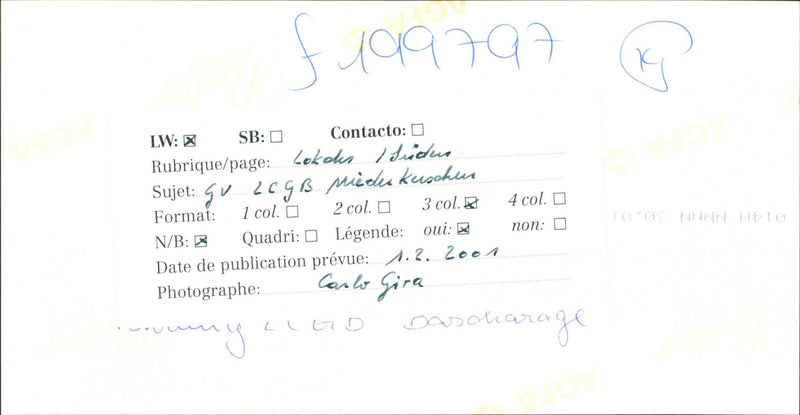 f 199797
KG
LW: ☒ SB: ☐ Contacto: ☐
Rubrique/page: Lokales / Süden
Sujet: GV LCGB Niederkerschen
Format: 1 col. ☐ 2 col. ☐ 3 col. ☒ 4 col. ☐
N/B: ☒ Quadri: ☐ Légende: oui: ☒ non: ☐
Date de publication prévue: 1.2.2001
Photographe: Carlo Gira
LCGB Bascharage
AGFA
AGFA
AGFA
AGFA